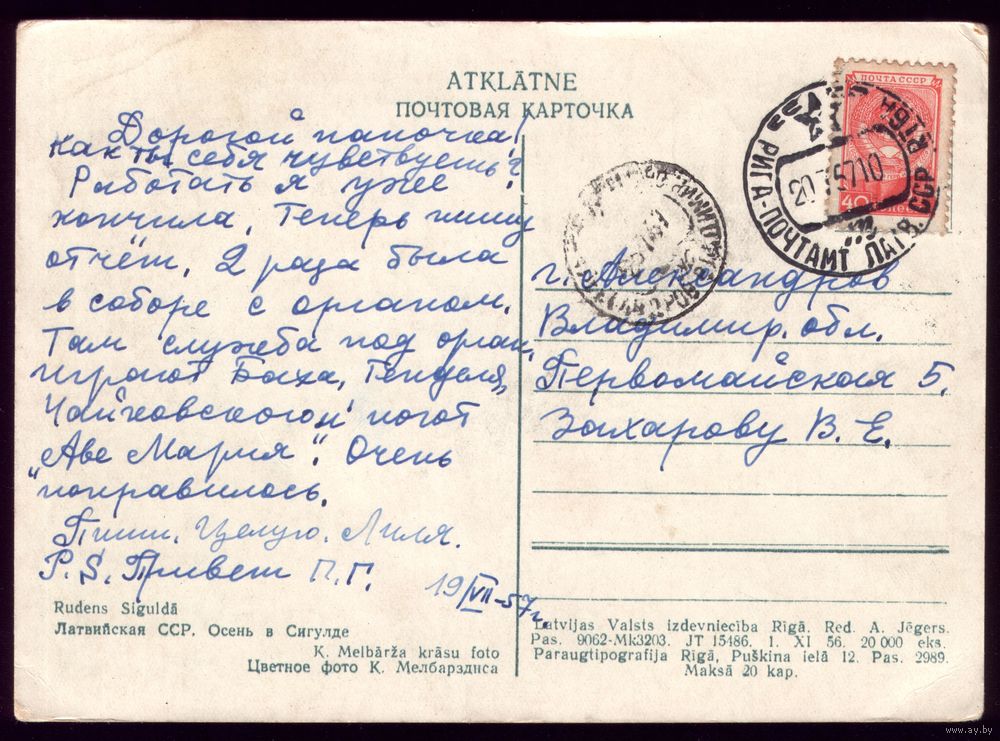 ATKLĀTNE
ПОЧТОВАЯ КАРТОЧКА
Дорогой папочка!
как ты себя чувствуешь?
Работать я уже
кончила. Теперь пишу
отчёт. 2 раза была
в соборе с органом.
Там служба под орган,
играют Баха, Генделя,
Чайковского и поют
„Аве Мария". Очень
понравилось.
Пиши. Целую. Лиля.
P.S. Привет П.Г.
19/VII-57г.
Rudens Siguldā
Латвийская ССР. Осень в Сигулде
K. Melbārža krāsu foto
Цветное фото К. Мелбарздиса
ПОЧТА СССР
40
РИГА-ПОЧТАМТ ЛАТВ. ССР
20 7 57 10
г. Александров
Владимир. обл.
Первомайская 5.
Захарову В. Е.
Latvijas Valsts izdevniecība Rīgā. Red. A. Jēgers.
Pas. 9062-Mk3203. JT 15486. 1. XI 56. 20 000 eks.
Paraugtipografija Rīgā, Puškina ielā 12. Pas. 2989.
Maksā 20 kap.
www.ay.by